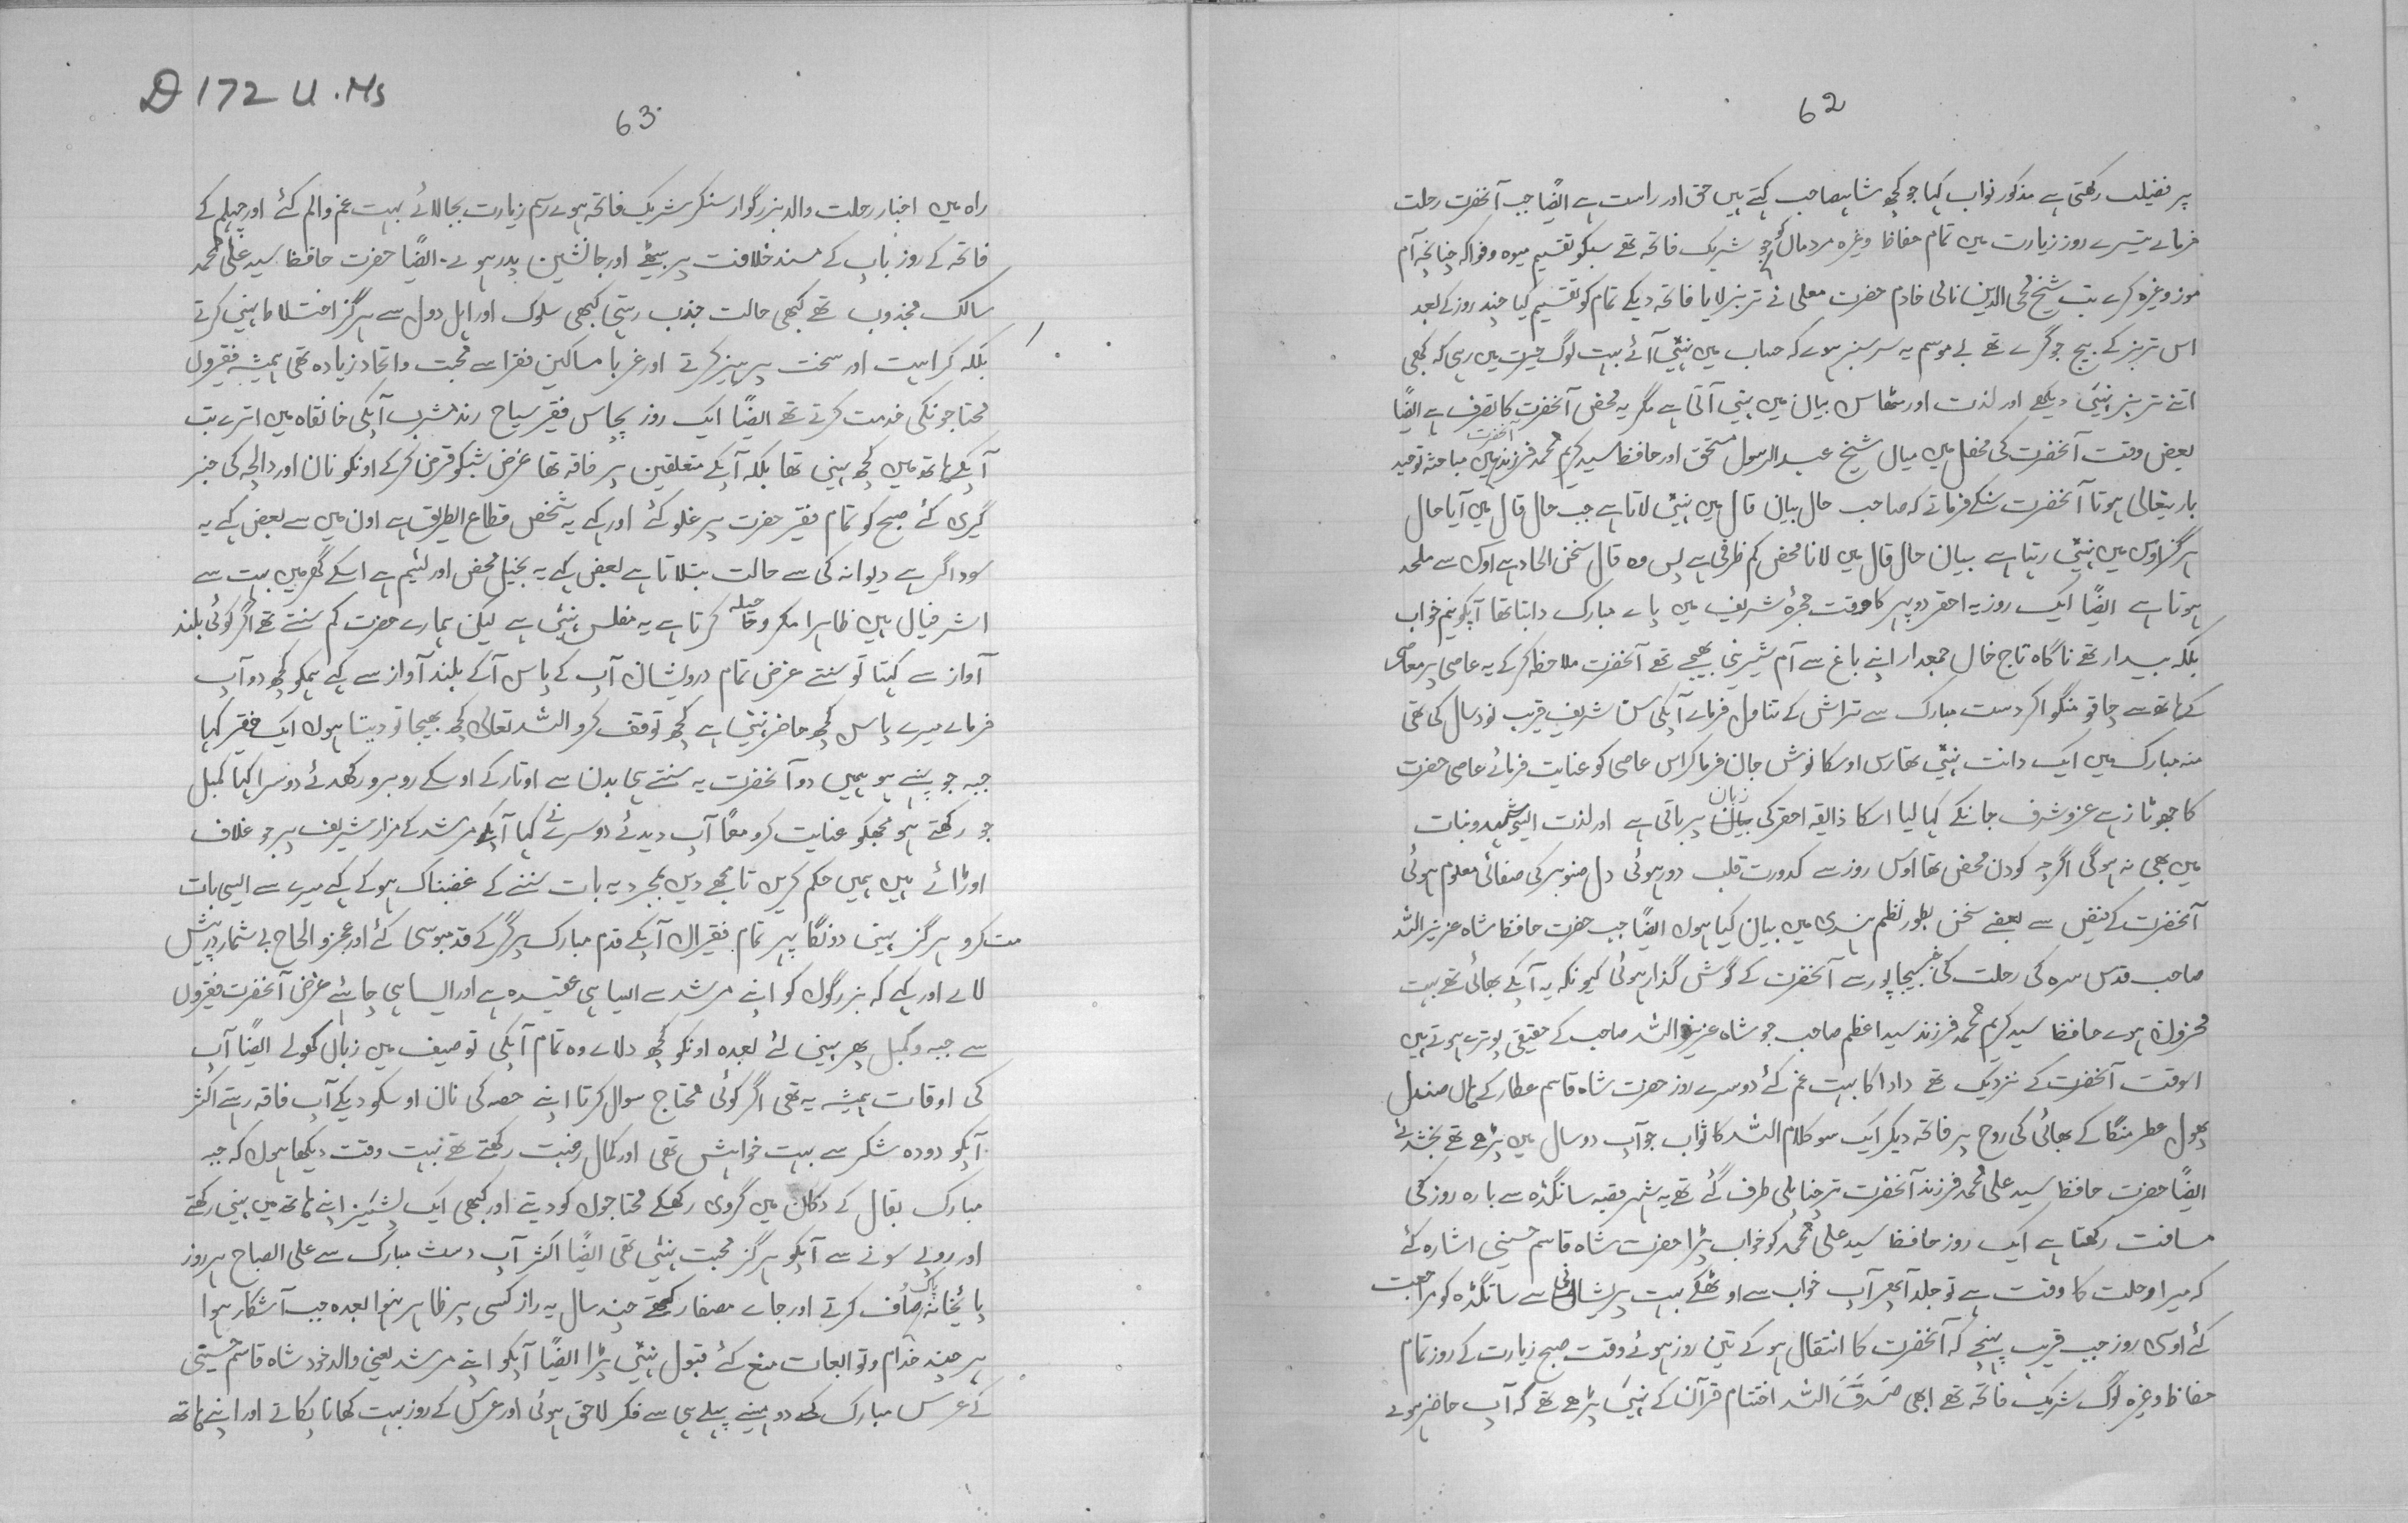 62
پر فضیلت رکھتی ہے مذکور نواب کہا جو کچھ شاہصاحب کہتے ہیں حق اور راست ہے ایضًا جب آنحضرت رحلت
فرماے تیسرے روز زیارت میں تمام حفاظ وغیرہ مردمان کو جو شریک فاتحہ تھے سبکو تقسیم میوہ و فواکہ چنانچہ آم
موز وغیرہ کرے تب شیخ محی الدین نالی خادم حضرت معلی نے تربز لایا فاتحہ دیکے تمام کو تقسیم کیا چند روز کے بعد
اس تربز کے بیج جو گرے تھے بے موسم یہ سرسبز ہوے کہ حساب میں نہیٔں آئے بہت لوگ حیرت میں رہی کہ کبھی
اتنے تربز نہیٔں دیکھے اور لذت اور مٹھاس بیان میں نہیں آتی ہے مگر یہ محض آنحضرت کا تصرف ہے ایضًا
بعض وقت آنحضرت کی محفل میں میاں شیخ عبد الرسول محقق اور حافظ سید کریم محمد فرزند آنحضرت میں مباحثہ توحید
باریتعالی ہوتا آنحضرت سنکے فرماتے کہ صاحب حال بیان قال میں نہیٔں لاتا ہے جب حال قال میں آیا حال
ہرگز اوس میں نہیٔں رہتا ہے بیان حال قال میں لانا محض کم ظرفی ہے پس وہ قال سخن الحاد ہے اوس سے ملحد
ہوتا ہے ایضًا ایک روز یہ احقر دوپہر کا وقت حجرۂ شریف میں پاے مبارک دابتا تھا آپکو نیم خواب
بلکہ بیدار تھے ناگاہ تاج خان جمعدار اپنے باغ سے آم شیریں بھیجے تھے آنحضرت ملاحظہ کر کے یہ عاصی پر معاصی
کے ہاتھ سے چاقو منگوا کر دست مبارک سے تراش کے تناول فرماے آپکی سن شریف قریب نود سال کی تھی
منہ مبارک میں ایک دانت نہیٔں تھا رس اوسکا نوش جان فرما کر اس عاصی کو عنایت فرمائے عاصی حضرت
کا جھوٹا زہے عز و شرف جانکے کہا لیا اسکا ذایقہ احقر کی زبان پر باقی ہے اور لذت ایسی شہد و نبات
میں بھی نہ ہوگی اگرچہ کودن محض تھا اوس روز سے کدورت قلب دور ہوئی دل صنوبر کی صفائی معلوم ہوئی
آنحضرت کے فیض سے بعضے سخن بطور نظم ہندی میں بیان کیا ہوں ایضًا جب حضرت حافظ شاہ عزیز اللہ
صاحب قدس سرہ کی رحلت کی خبر بیجاپور سے آنحضرت کے گوش گذار ہوئی کیونکہ یہ آپکے بھائی تھے بہت
محزون ہوے حافظ سید کریم محمد فرزند سید اعظم صاحب جو شاہ عزیز اللہ صاحب کے حقیقی پوترے ہوتے ہیں
اسوقت آنحضرت کے نزدیک تھے دادا کا بہت غم کئے دوسرے روز حضرت شاہ قاسم عطار کے ہاں صندل
پھول عطر منگا کے بھائی کی روح پر فاتحہ دیکر ایک سو کلام اللہ کا ثواب جو آپ دو سال میں پڑھے تھے بخشدئے
ایضًا حضرت حافظ سید علی محمد فرزند آنحضرت ترچناپلی طرف گئے تھے یہ شہر قصبہ ساتگڈہ سے بارہ روز کی
مسافت رکھتا ہے ایک روز حافظ سید علی محمد کو خواب پڑا حضرت شاہ قاسم حسینی اشارہ کئے
کہ میرا رحلت کا وقت ہے تو جلد آ پھر آپ خواب سے اوٹھکے بہت پریشانی سے ساتگڈہ کو مراجعت
کئے اوسی روز جب قریب پہنچے کہ آنحضرت کا انتقال ہو کے تین روز ہوئے وقت صبح زیارت کے روز تمام
حفاظ وغیرہ لوگ شریک فاتحہ تھے ابھی صَدَقَ اللہ اختتام قرآن کے نہیٔں پڑھے تھے کہ آپ حاضر ہوے
D 172 U.Ms
63
راہ میں اخبار رحلت والد بزرگوار سنکر شریک فاتحہ ہوے رسم زیارت بجالائے بہت غم و الم کئے اور چہلم کے
فاتحہ کے روز باپ کے مسند خلافت پر بیٹھے اور جانشین پدر ہوے۔ ایضًا حضرت حافظ سید علی محمد
سالک مجذوب تھے کبھی حالت جذب رہتی کبھی سلوک اور اہل دول سے ہرگز اختلاط نہیٔں کرتے
بلکہ کراہیت اور سخت پرہیز کرتے اور غربا مساکین فقرا سے محبت و اتحاد زیادہ تھی ہمیشہ فقیروں
محتاجونکی خدمت کرتے تھے ایضًا ایک روز پچاس فقیر سیاح رند مشرب آپکی خانقاہ میں اترے تب
آپکے ہاتھ میں کچھ نہیں تھا بلکہ آپکے متعلقین پر فاقہ تھا غرض شبکو قرض کر کے اونکو نان اور دالچہ کی خبر
گیری کئے صبح کو تمام فقیر حضرت پر غلو کئے اور کہے یہ شخص قطاع الطریق ہے اون میں سے بعض کہے یہ
سوداگر ہے دیوانہ کی سے حالت بتلاتا ہے بعض کہے یہ بخیل محض اور لئیم ہے اسکے گھر میں بہت سے
اشرفیاں ہیں ظاہرا مکر و حیلہ کرتا ہے یہ مفلس نہیٔں ہے لیکن ہمارے حضرت کم سنتے تھے اگر کوئی بلند
آواز سے کہتا تو سنتے غرض تمام درویشان آپ کے پاس آ کے بلند آواز سے کہے ہمکو کچھ دو آپ
فرماے میرے پاس کچھ حاضر نہیٔں ہے کچھ توقف کرو اللہ تعالی کچھ بھیجا تو دیتا ہوں ایک فقیر کہا
جبہ جو پہنے ہو ہمیں دو آنحضرت یہ سنتے ہی بدن سے اوتار کے اوسکے روبرو رکھدئے دوسرا کہا کمبل
جو رکھتے ہو مجھکو عنایت کرو معًا آپ دیدئے دوسرے نے کہا آپکے مرشد کے مزار شریف پر جو غلاف
اوڑائے ہیں ہمیں حکم کریں تا مجھے دیں بمجرد یہ بات سننے کے غضبناک ہو کے کہے میرے سے ایسی بات
مت کرو ہرگز نہیں دونگا پھر تمام فقیراں آپکے قدم مبارک پر گر کے قدمبوسی کئے اور عجز و الحاح بے شمار درپیش
لاے اور کہے کہ بزرگوں کو اپنے مرشد سے ایسا ہی عقیدہ ہے اور ایسا ہی چاہئے غرض آنحضرت فقیروں
سے جبہ و کمبل پھر نہیں لئے بعدہ اونکو کچھ دلاے وہ تمام آپکی توصیف میں زبان کھولے ایضًا آپ
کی اوقات ہمیشہ یہ تھی اگر کوئی محتاج سوال کرتا اپنے حصہ کی نان اوسکو دیکے آپ فاقہ رہتے اکثر
آپکو دودہ شکر سے بہت خواہش تھی اور کمال رغبت رکھتے تھے بہت وقت دیکھا ہوں کہ جبہ
مبارک بقال کے دکان میں گروی رکھکے محتاجوں کو دیتے اور کبھی ایک پشیز اپنے ہاتھ میں نہیں رکھتے
اور روپے سونے سے آپکو ہرگز محبت نہیٔں تھی ایضًا اکثر آپ دست مبارک سے علی الصباح ہر روز
پایٔخانہ پاک صاف کرتے اور جاے مصفا رکھتے چند سال یہ راز کسی پر ظاہر نہوا بعدہ جب آشکار ہوا
ہر چند خدام و توابعات منع کئے قبول نہیٔں پڑا ایضًا آپکو اپنے مرشد یعنی والد خود شاہ قاسم حسینی
کے عرس مبارک کے دو مہینے پہلے ہی سے فکر لاحق ہوئی اور عرس کے روز بہت کھانا پکاتے اور اپنے ہاتھ